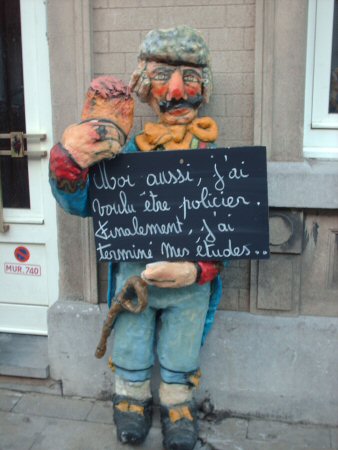 Moi aussi, j'ai
voulu être policier.
Finalement, j'ai
terminé mes études..
MUR.740